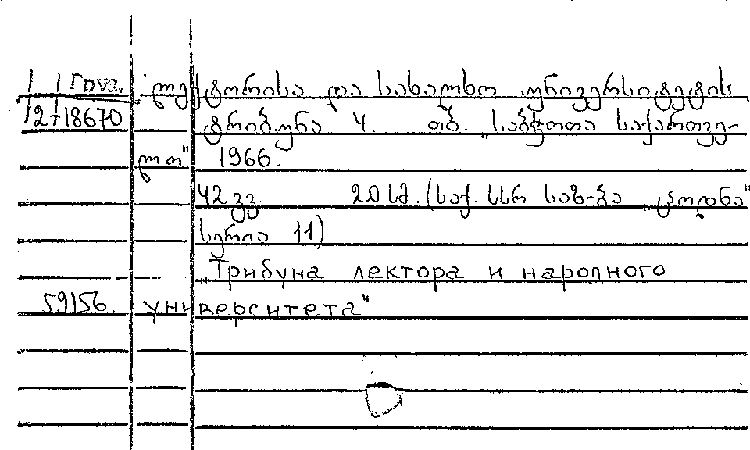 ლექტორისა და სახალხო უნივერსიტეტის
12+18670 ტრიბუნა 4. თბ. „საბჭოთა საქართვე-
ლო" 1966.
42 გვ. 20 სმ. (საქ. სსრ საზ-ბა „ცოდნა"
სერია 11)
„Трибуна лектора и народного
59156. университета"